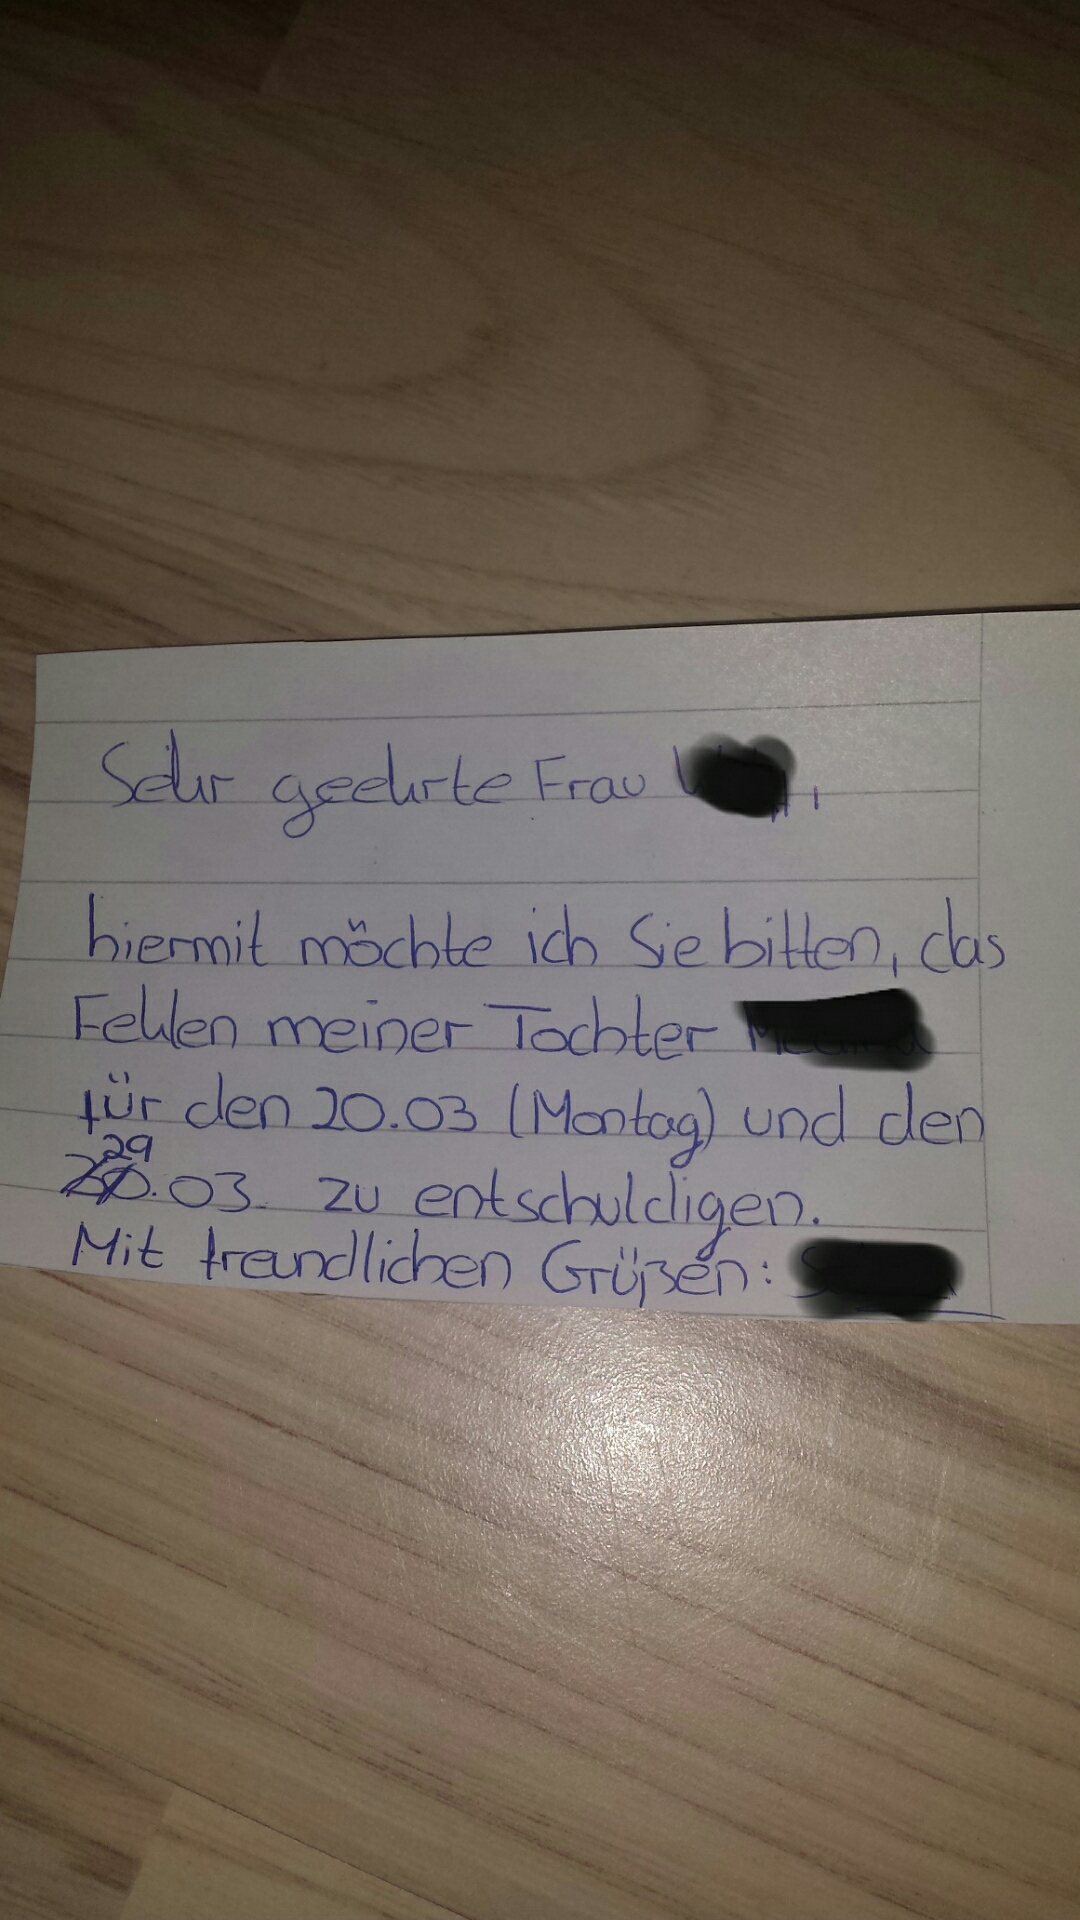 Sehr geehrte Frau
hiermit möchte ich Sie bitten, das
Fehlen meiner Tochter
für den 20.03 (Montag) und den
29.03. zu entschuldigen.
Mit freundlichen Grüßen: